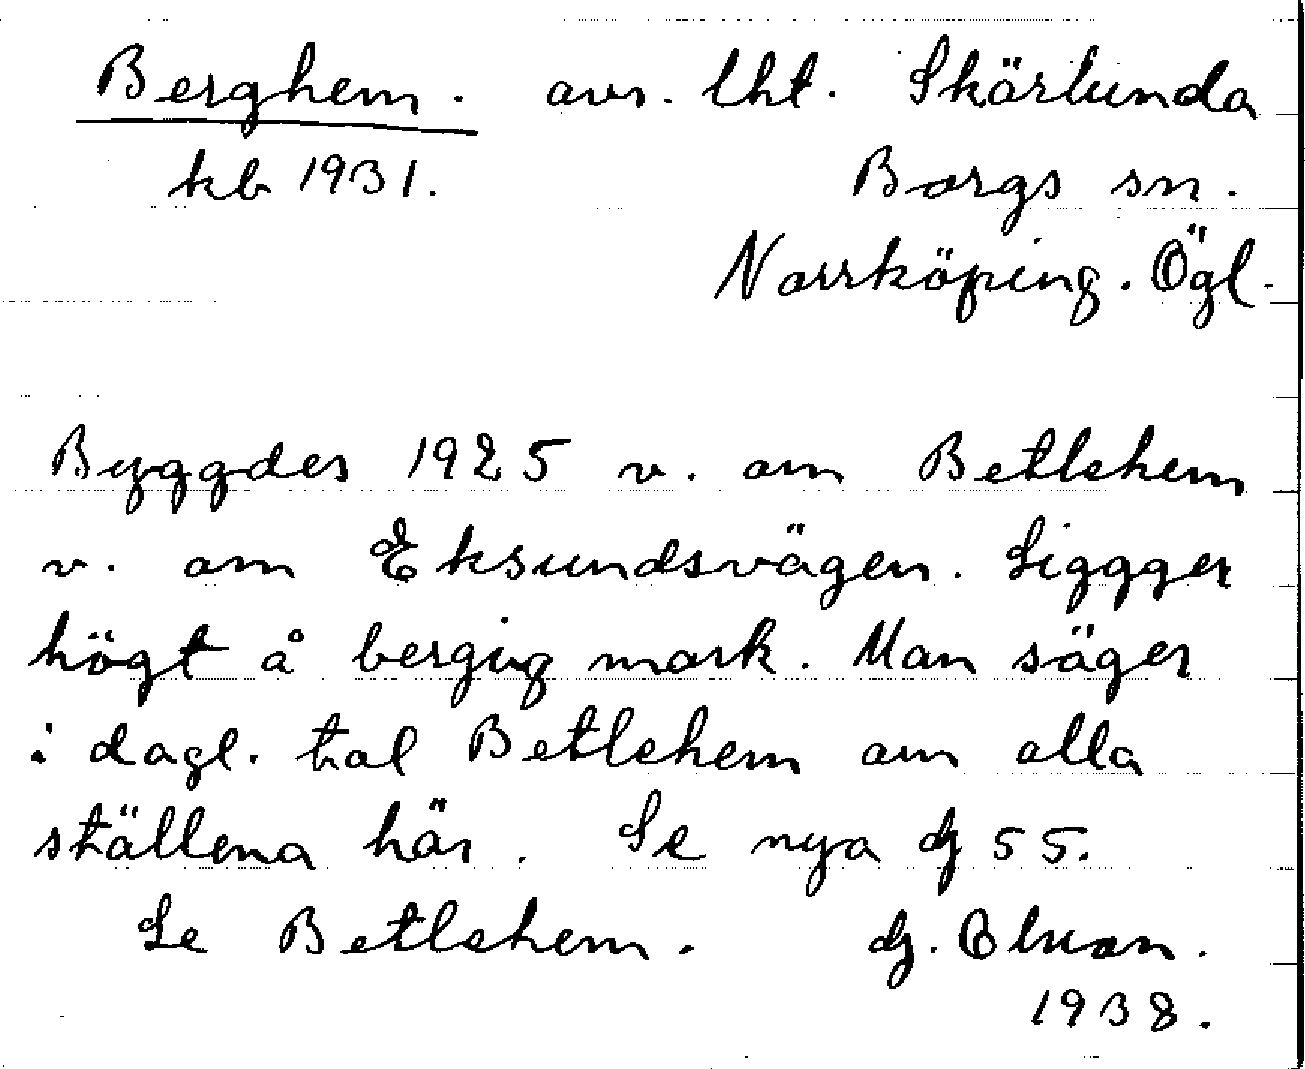 Berghem. avs. lht. Skärlunda
kb 1931. Borgs sn.
Norrköping. Ögl.
Byggdes 1925 v. om Betlehem
v. om Eksundsvägen. Ligger
högt å bergig mark. Man säger
i dagl. tal Betlehem om alla
ställena här. Se nya dj 55.
Se Betlehem. dj.
1938.